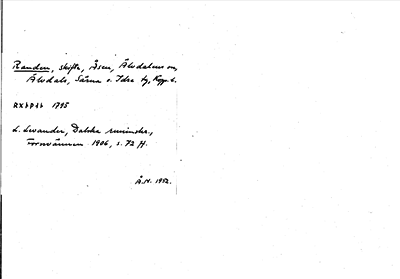 Randen, skifte, Åsen, Älvdalens sn,
Älvdals, Särna o. Idre tg, Kopp. l.
1795
L. Levander, Dalska runinskr.,
Fornvännen 1906, s. 72 ff.
Å.N. 1952.